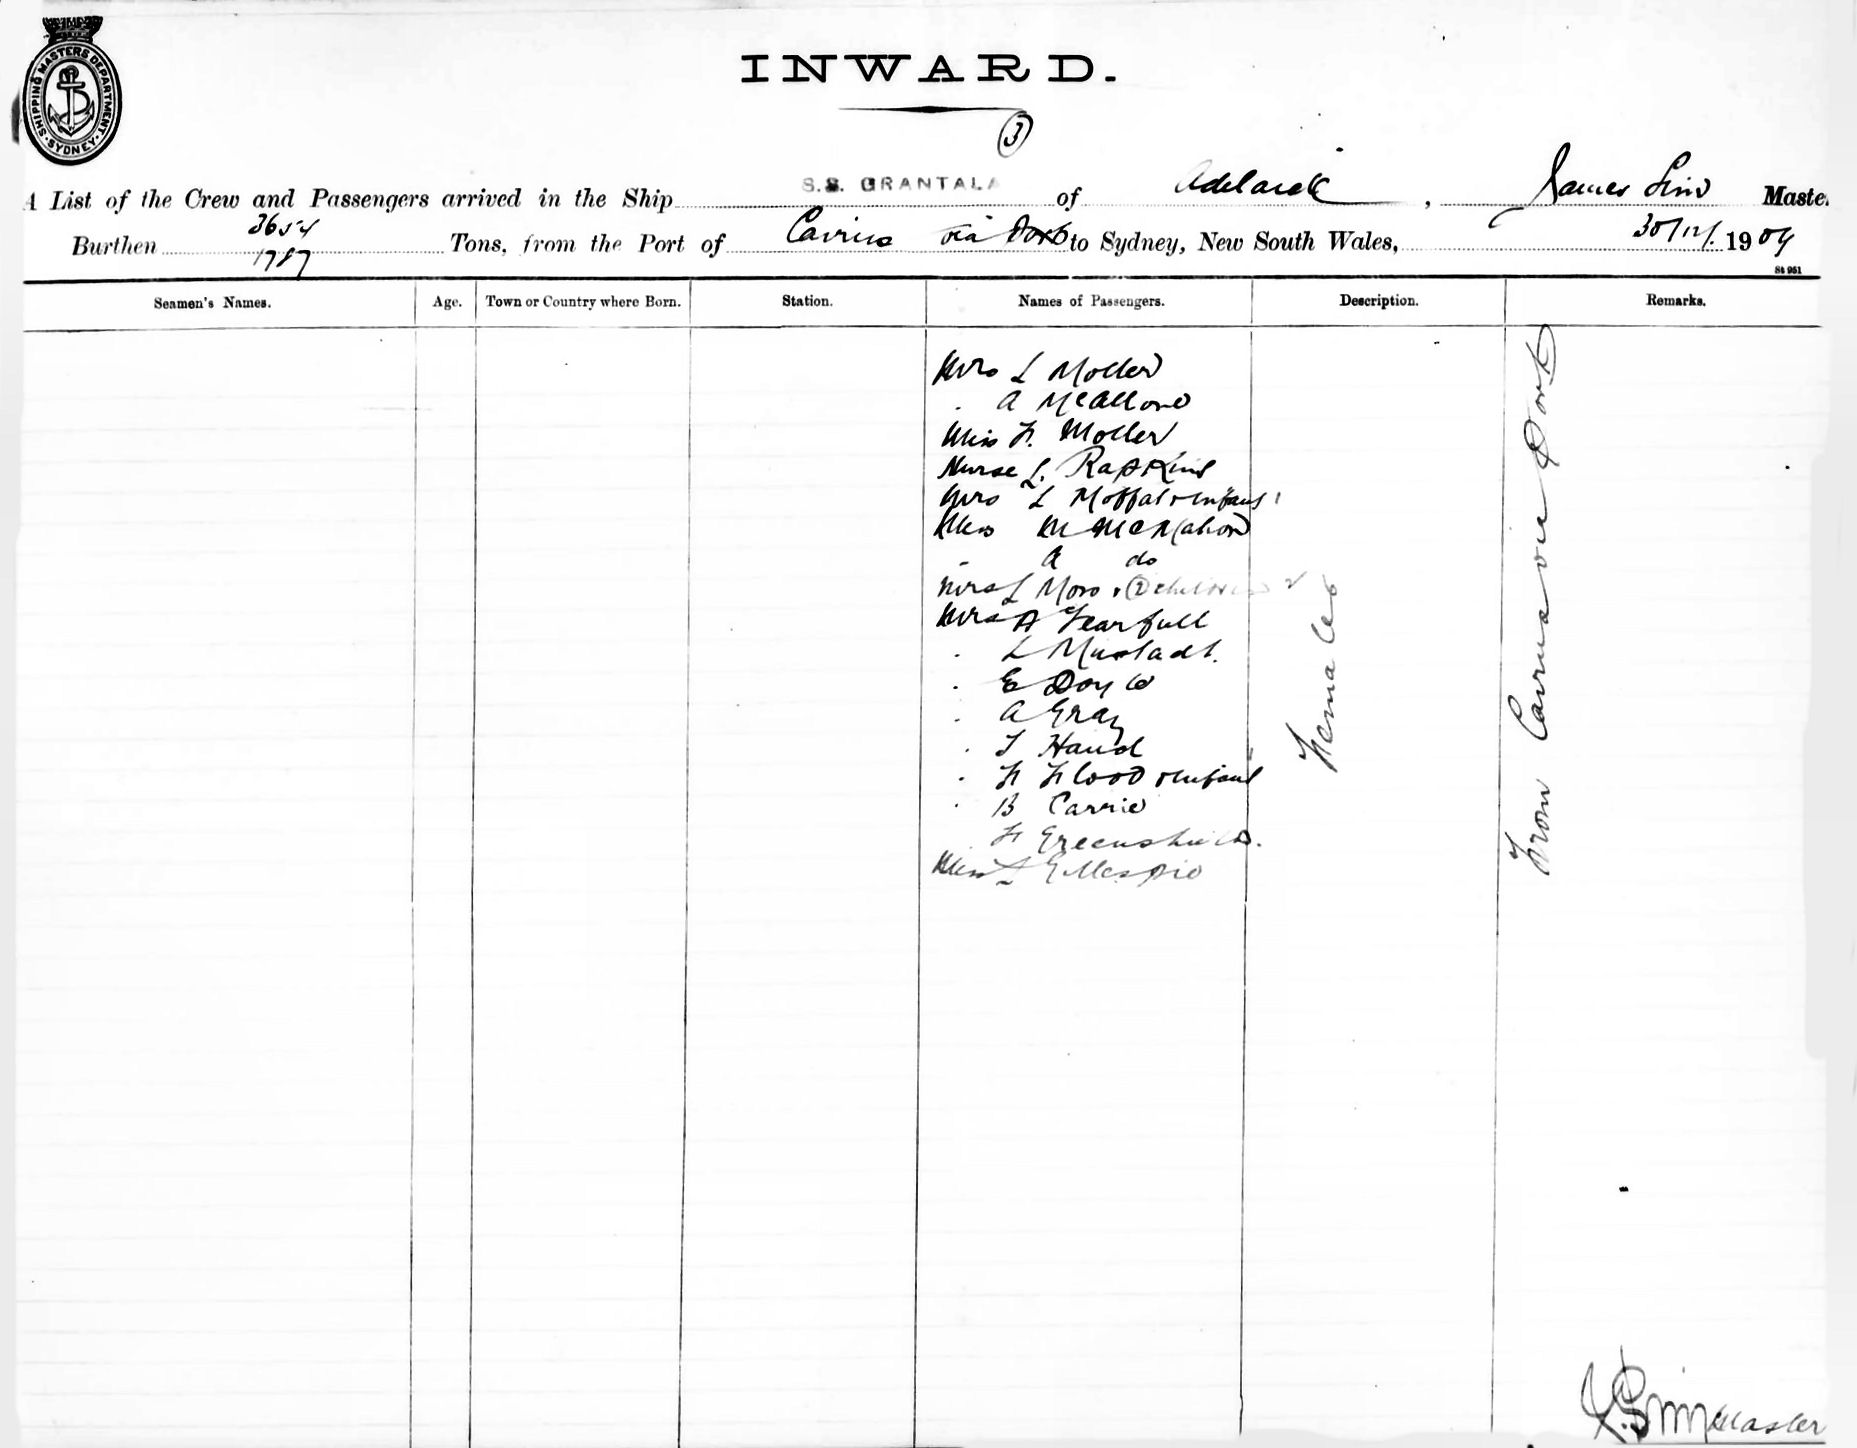 SHIPPING MASTERS DEPARTMENT · SYDNEY ·
INWARD.
3
A List of the Crew and Passengers arrived in the Ship S.S. GRANTALA of Adelaide, James Sim Master
Burthen 3654 1787 Tons, from the Port of Cairns via Ports to Sydney, New South Wales, 30/12/ 1904
St 951
Seamen's Names. Age. Town or Country where Born. Station. Names of Passengers. Description. Remarks.
Mrs L Moller
. A McAllone
Miss F. Moller
Nurse L. Rapkins
Mrs L Moffat & Infant 1
Miss M McMahon
- A do
Mrs L Moro & 2 children 2
Mrs A Fearfull
. L Mustadt.
. E Doyle
. A Gray
. T Hand
. F Flood & Infant
. B Carrie
. F Greenshields.
Miss L Gillespie
Females
From Cairns via Ports
J. Sim Master